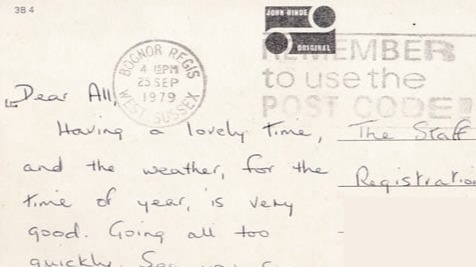 3B 4
JOHN HINDE
ORIGINAL
REMEMBER
to use the
POST CODE
BOGNOR REGIS
4 15PM
25 SEP
1979
WEST SUSSEX
Dear All,
Having a lovely time,
and the weather, for the
time of year, is very
good. Going all too
quickly. See you
The Staff
Registration